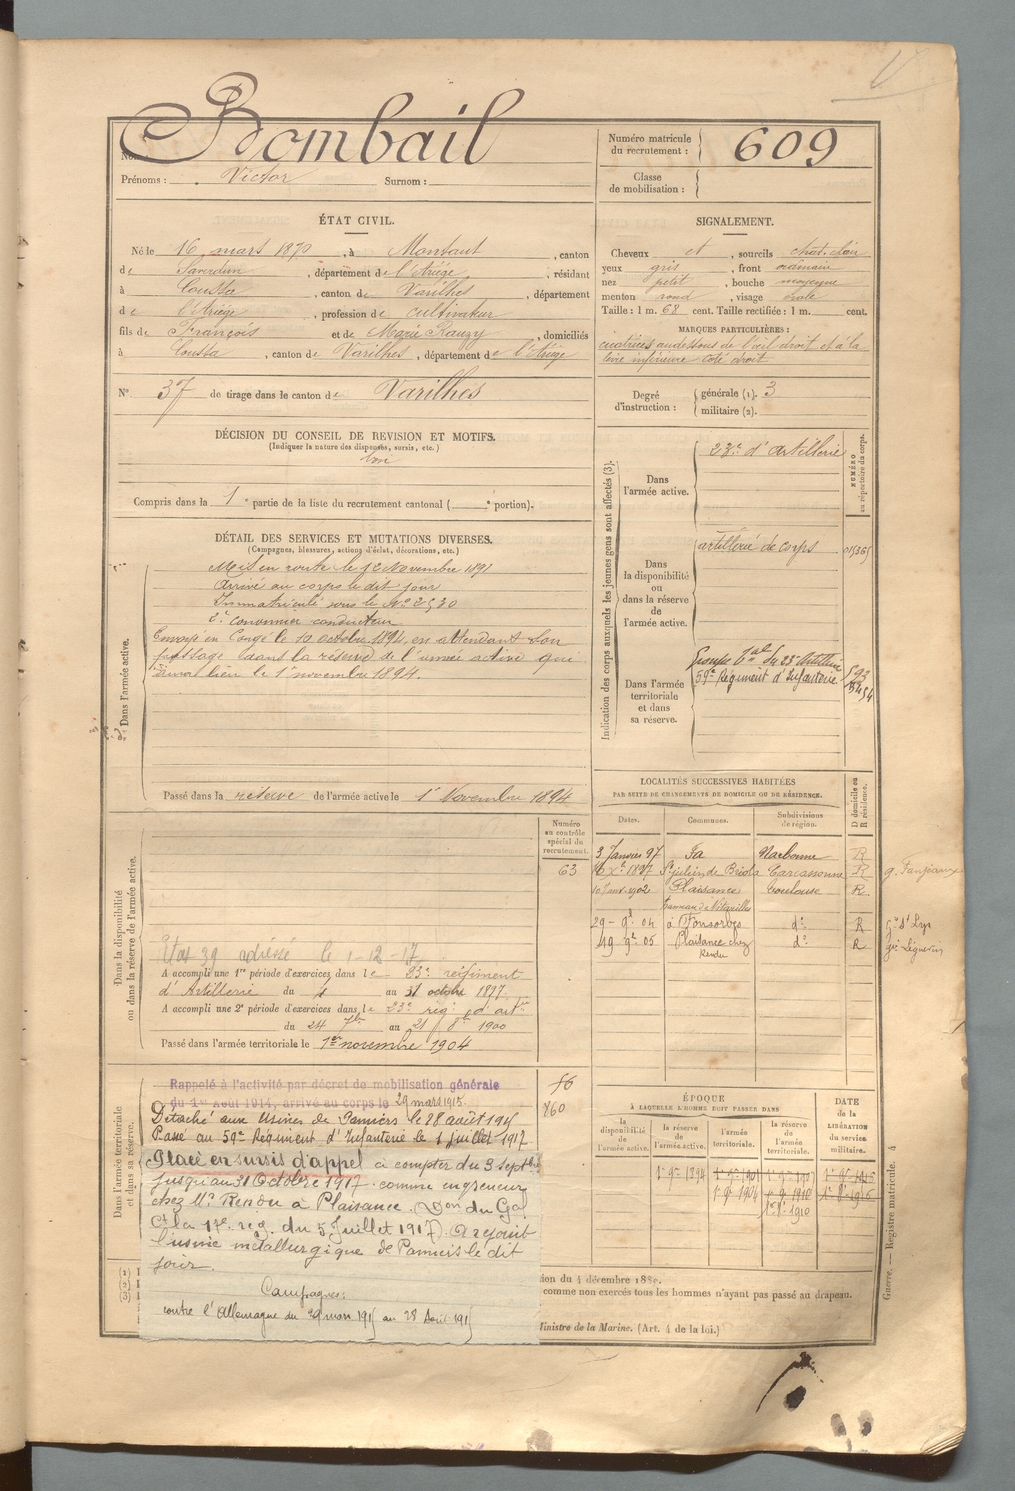 Bombail
Prénoms : Victor Surnom :
Numéro matricule
du recrutement : 609
Classe
de mobilisation :
ÉTAT CIVIL.
Né le 16 mars 1870, à Montaut, canton
de Saverdun, département de l'Ariège, résidant
à Coussa, canton de Varilhes, département
de l'Ariège, profession de cultivateur
fils de François et de Marie Rauzy, domiciliés
à Coussa, canton de Varilhes, département de l'Ariège
N° 37 de tirage dans le canton de Varilhes
SIGNALEMENT.
Cheveux et, sourcils chat. clair
yeux gris, front ordinaire
nez petit, bouche moyenne
menton rond, visage ovale
Taille : 1 m. 68 cent. Taille rectifiée : 1 m. cent.
MARQUES PARTICULIÈRES :
cicatrices au dessous de l'œil droit et à la
lèvre inférieure coté droit
Degré
d'instruction :
générale (1). 3
militaire (2).
DÉCISION DU CONSEIL DE REVISION ET MOTIFS.
(Indiquer la nature des dispenses, sursis, etc.)
bon
Compris dans la 1e partie de la liste du recrutement cantonal ( e portion).
DÉTAIL DES SERVICES ET MUTATIONS DIVERSES.
(Campagnes, blessures, actions d'éclat, décorations, etc.)
Dans l'armée active.
Mis en route le 12 Novembre 1891
Arrivé au corps le dit jour
Immatriculé sous le N° 2530
2e canonnier conducteur
Envoyé en Congé le 10 octobre 1894, en attendant son
passage dans la réserve de l'armée active qui
aura lieu le 1 novembre 1894.
Passé dans la réserve de l'armée active le 1er Novembre 1894
Indication des corps auxquels les jeunes gens sont affectés (3).
NUMÉRO
au répertoire du corps.
Dans
l'armée active.
23e d'Artillerie
Dans
la disponibilité
ou
dans la réserve
de
l'armée active.
artillerie de corps
Dans l'armée
territoriale
et dans
sa réserve.
Groupe tal du 23e Artillerie
59e Régiment d'Infanterie
LOCALITÉS SUCCESSIVES HABITÉES
PAR SUITE DE CHANGEMENTS DE DOMICILE OU DE RÉSIDENCE.
D domicile ou
R résidence.
Dates. Communes. Subdivisions
de région.
3 Janvier 97 Fa Narbonne R
16 Xe 1897 St Julien de Briola Carcassonne R g. Fanjeaux
10 Janv. 1902 Plaisance Toulouse R
29 - 9 04 à Fonsorbes do R Gie St Lys
19 9e 05 Plaisance chez do R Gie Léguevin
Rendu
Dans la disponibilité
ou dans la réserve de l'armée active.
Numéro
au contrôle
spécial du
recrutement.
63
Etat 39 adressé le 1-12-17
A accompli une 1re période d'exercices dans le 23e régiment
d'Artillerie du 4 au 31 octobre 1897
A accompli une 2e période d'exercices dans le 23e rég. d'artie
du 24 7bre au 21 8bre 1900
Passé dans l'armée territoriale le 1er novembre 1904
Dans l'armée territoriale
et dans sa réserve.
Rappelé à l'activité par décret de mobilisation générale
du 1er Août 1914, arrivé au corps le 29 mars 1915.
Détaché aux Usines de Pamiers le 28 août 1915
Passé au 59e Régiment d'Infanterie le 1 juillet 1917
Placé en sursis d'appel à compter du 3 septbre
jusqu'au 31 Octobre 1917 comme engreneur
chez Mr Rendu à Plaisance. (Don du Gal
Ct la 17e rég. du 5 Juillet 1917) A rejoint
l'usine métallurgique de Pamiers le dit
jour.
Campagnes:
contre l'Allemagne du 29 mars 1915 au 28 Août 1915
ÉPOQUE
À LAQUELLE L'HOMME DOIT PASSER DANS
la
disponibilité
de
l'armée active.
la réserve
de
l'armée active.
l'armée
territoriale.
la réserve
de
l'armée
territoriale.
DATE
de la
LIBÉRATION
du service
militaire.
1er 9e 1894
1er 9e 1904
1er 9e 1910
tion du 4 décembre 1889.
comme non exercés tous les hommes n'ayant pas passé au drapeau.
Ministre de la Marine. (Art. 4 de la loi.)
Guerre. — Registre matricule. 4